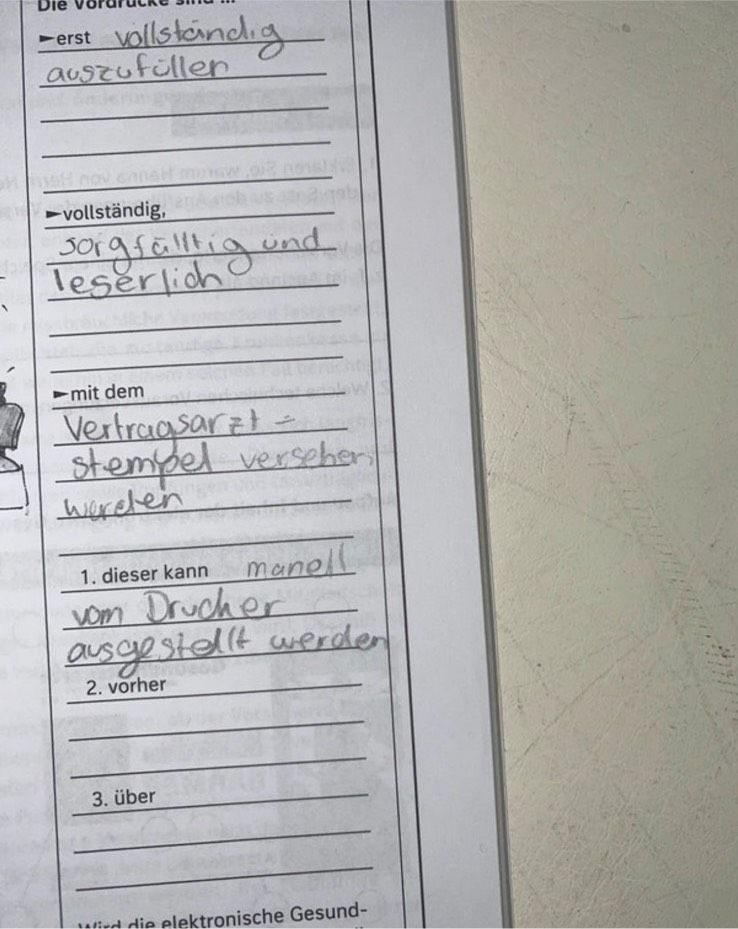 Die Vordrucke sind ...
►erst vollständig
auszufüllen
►vollständig,
sorgfälltig und
leserlich
►mit dem
Vertragsarzt -
stempel versehen
werden
1. dieser kann manell
vom Drucher
ausgestellt werden
2. vorher
3. über
Wird die elektronische Gesund-